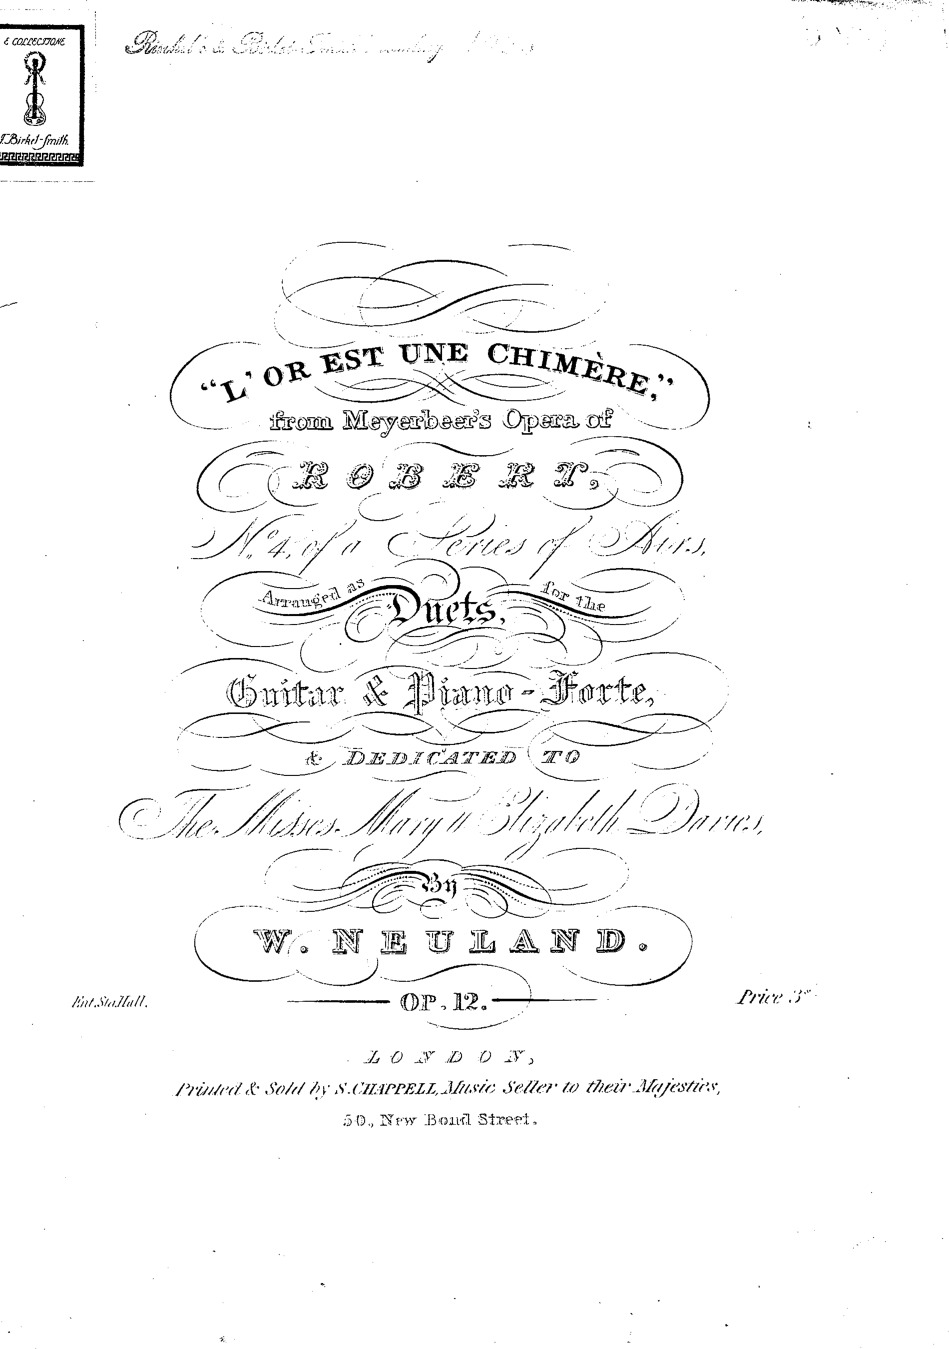 E COLLECTIONE
Birket-Smith.
Rischel & Birket-Smith
"L'OR EST UNE CHIMÈRE,"
from Meyerbeer's Opera of
ROBERT,
No. 4, of a Series of Airs,
Arranged as Duets, for the
Guitar & Piano-Forte,
& DEDICATED TO
The Misses Mary & Elizabeth Davies,
By
W. NEULAND.
OP. 12.
Ent. Sta. Hall.
Price 3s
LONDON,
Printed & Sold by S. CHAPPELL, Music Seller to their Majesties,
50, New Bond Street.